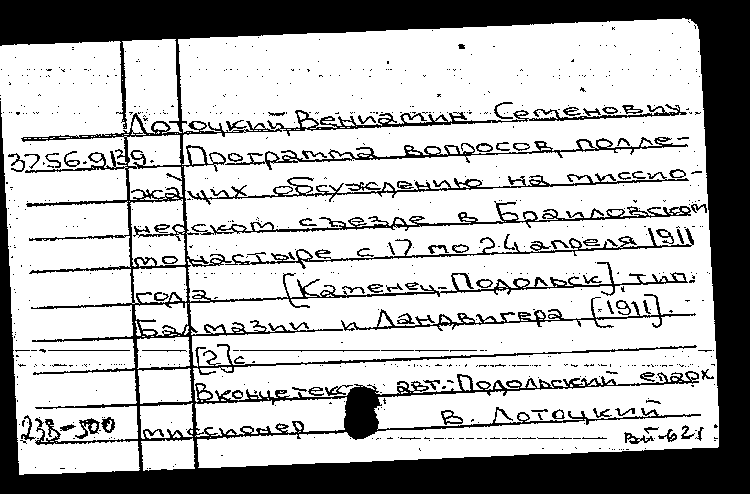 Лотоцкий, Вениамин Семенович.
37.56.9.139. Программа вопросов, подле-
жащих обсуждению на миссио-
нерском съезде в Браиловском
монастыре с 17 по 24 апреля 1911
года. [Каменец-Подольск], тип.
Балмазии и Ландвигера, [1911].
[2] с.
В конце текста авт.: Подольский епарх.
238-500 миссионер В. Лотоцкий